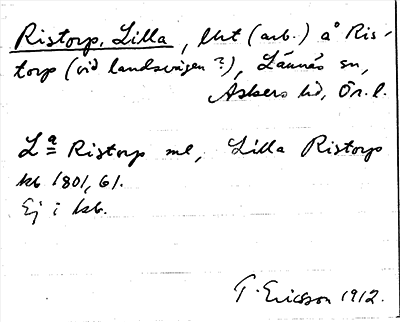 Ristorp, Lilla, lht (arb.) å Ris-
torp (vid landsvägen?), Lännäs sn,
Askers hd, Ör. l.
Lª Ristorp ml, Lilla Ristorp
kb 1801, 61.
Ej i kb.
T. Ericsson 1912.